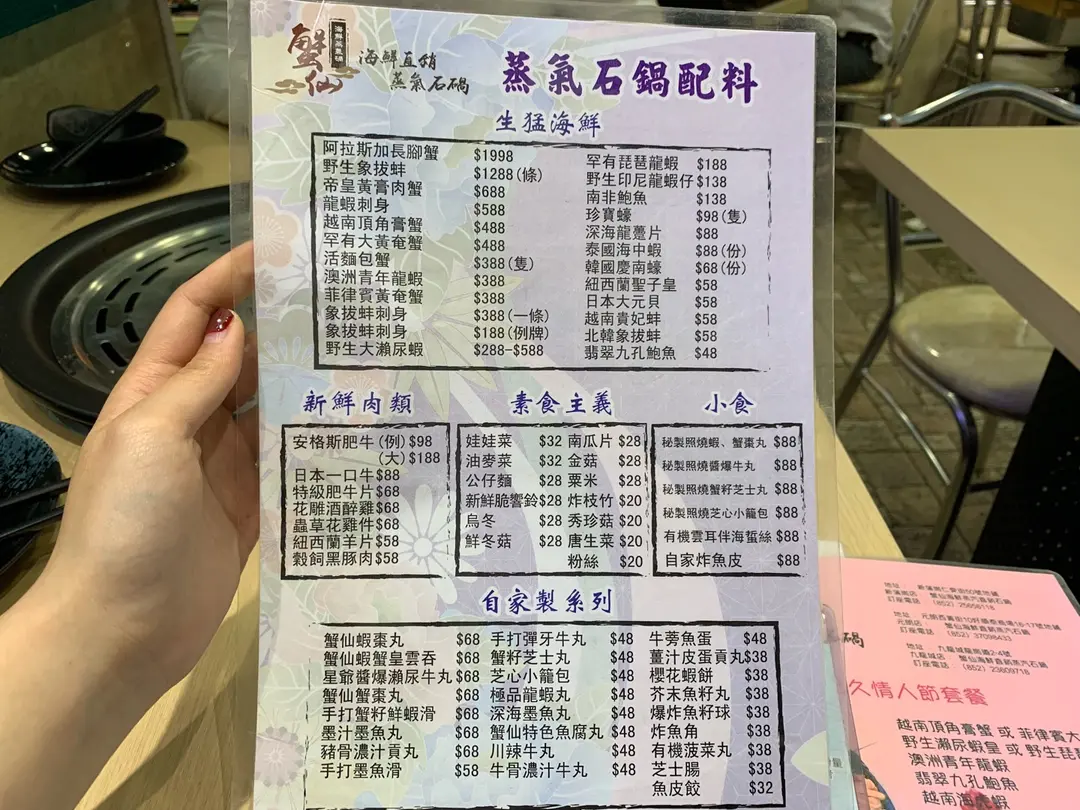 蟹仙
海鮮蒸氣鍋
海鮮直銷
蒸氣石鍋
蒸氣石鍋配料
生猛海鮮
阿拉斯加長腳蟹 $1998
野生象拔蚌 $1288(條)
帝皇黃膏肉蟹 $688
龍蝦刺身 $588
越南頂角膏蟹 $488
罕有大黃奄蟹 $488
活麵包蟹 $388(隻)
澳洲青年龍蝦 $388
菲律賓黃奄蟹 $388
象拔蚌刺身 $388(一條)
象拔蚌刺身 $188(例牌)
野生大瀨尿蝦 $288-$588
罕有琵琶龍蝦 $188
野生印尼龍蝦仔 $138
南非鮑魚 $138
珍寶蠔 $98(隻)
深海龍躉片 $88
泰國海中蝦 $88(份)
韓國慶南蠔 $68(份)
紐西蘭聖子皇 $58
日本大元貝 $58
越南貴妃蚌 $58
北韓象拔蚌 $58
翡翠九孔鮑魚 $48
新鮮肉類
安格斯肥牛(例) $98
(大) $188
日本一口牛 $88
特級肥牛片 $68
花雕酒醉雞 $68
蟲草花雞件 $68
紐西蘭羊片 $58
穀飼黑豚肉 $58
素食主義
娃娃菜 $32
油麥菜 $32
公仔麵 $28
新鮮脆響鈴 $28
烏冬 $28
鮮冬菇 $28
南瓜片 $28
金菇 $28
粟米 $28
炸枝竹 $20
秀珍菇 $20
唐生菜 $20
粉絲 $20
小食
秘製照燒蝦、蟹棗丸 $88
秘製照燒醬爆牛丸 $88
秘製照燒蟹籽芝士丸 $88
秘製照燒芝心小籠包 $88
有機雲耳伴海蜇絲 $88
自家炸魚皮 $88
自家製系列
蟹仙蝦棗丸 $68
蟹仙蝦蟹皇雲吞 $68
星爺醬爆瀨尿牛丸 $68
蟹仙蟹棗丸 $68
手打蟹籽鮮蝦滑 $68
墨汁墨魚丸 $68
豬骨濃汁貢丸 $68
手打墨魚滑 $58
手打彈牙牛丸 $48
蟹籽芝士丸 $48
芝心小籠包 $48
極品龍蝦丸 $48
深海墨魚丸 $48
蟹仙特色魚腐丸 $48
川辣牛丸 $48
牛骨濃汁牛丸 $48
牛蒡魚蛋 $48
薑汁皮蛋貢丸 $38
櫻花蝦餅 $38
芥末魚籽丸 $38
爆炸魚籽球 $38
炸魚角 $38
有機菠菜丸 $38
芝士腸 $38
魚皮餃 $32
訂座電話 : (852) 25656118
訂座電話 : (852) 37098433
九龍城店 蟹仙海鮮直銷蒸汽石鍋
訂座電話 : (852) 23609718
久情人節套餐
越南頂角膏蟹 或 菲律賓大
野生瀨尿蝦皇 或 野生琵琶
澳洲青年龍蝦
翡翠九孔鮑魚